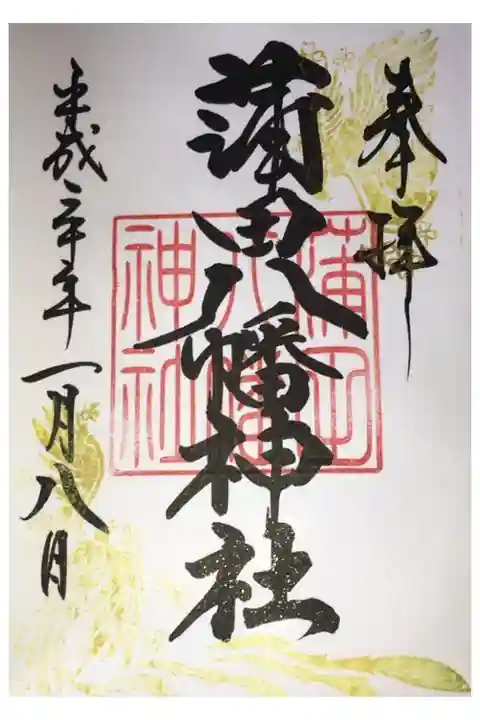 奉拝
蒲田八幡神社
蒲田
八幡
神社
平成 年一月八日